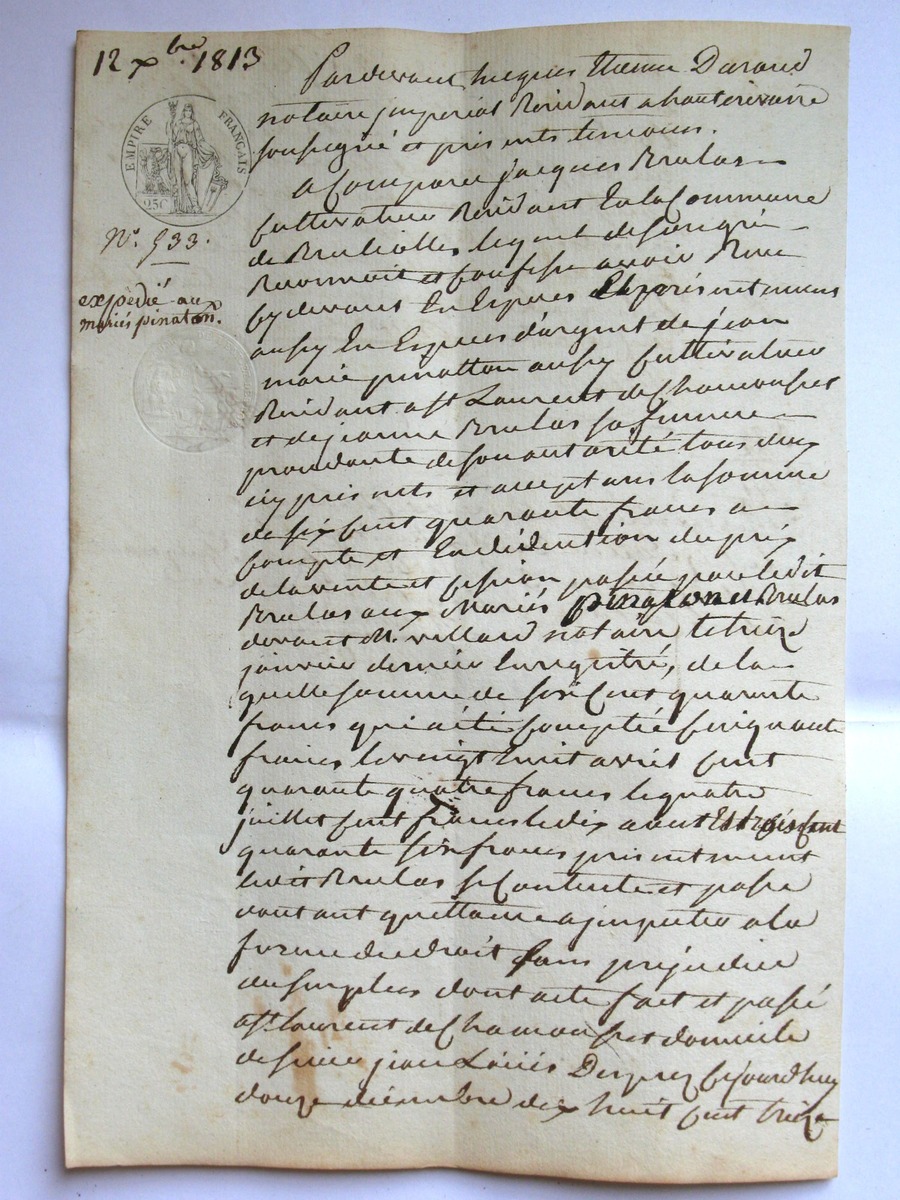 12 xbre 1813
EMPIRE FRANÇAIS
25C
N.° 533.
expédié aux
mariés pinaton.
Pardevant Jacques Etienne Durand
notaire jmperial Residant a hauterivoire
soussigné et présents temoins.
a Comparu jacques Brulas
Cultivateur Residant En la Commune
de Brullioles lequel de son gré
Reconnoit et Confesse avoir Recu
cy devant En Especes Et présentement
aussy En Especes d'argent de jean
marie pinatton aussy Cultivateur
Residant a st Laurent de Chamousset
et de jeanne Brulas sa femme
procedante de son autorité tous deux
icy présents et acceptans la somme
de six cent quarante francs a
Compte et En déduction du prix
de la vente et cession passée par ledit
Brulas aux Mariés pinaton et Brulas
devant M.e villard notaire le treize
janvier dernier Enregistré, de la
quelle somme de six Cent quarante
francs qui a été Comptée Cinquante
francs le vingt huit avril Cent
quarante quatre francs le quatre
juillet Cent francs le dix aout Et trois Cent
quarante six francs présentement
ledit Brulas se Contente et passe
d'autant quittance a jmputer a la
forme du droit sans préjudice
du surplus dont acte fait et passé
a st laurent de Chamousset domicile
de sieur jean Louis Desprez cejourd'huy
douze décembre dix huit cent treize